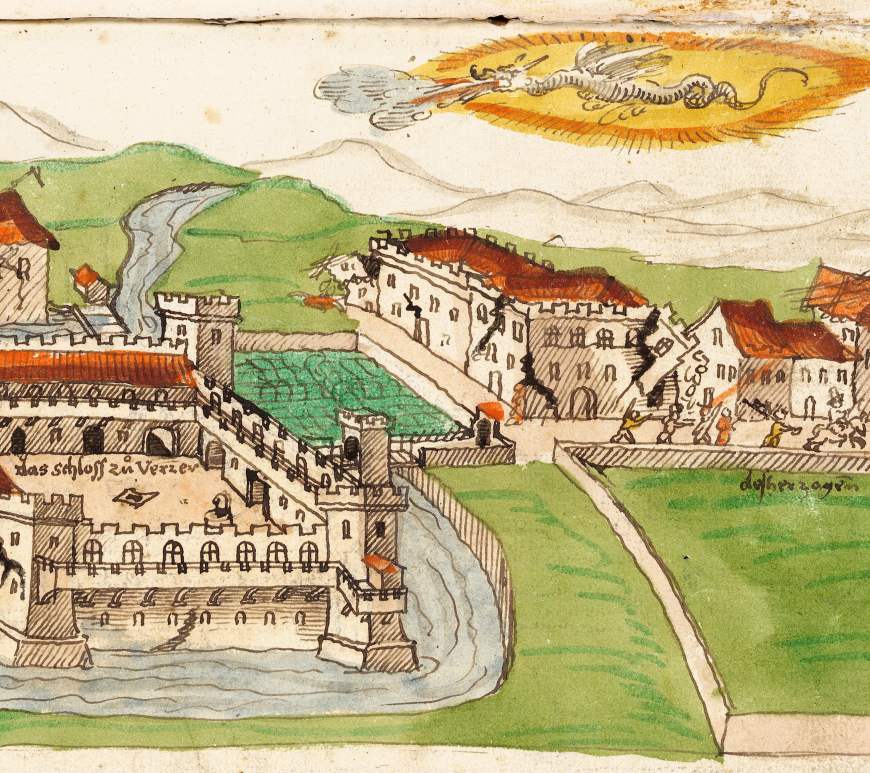 das schloss zů Verrer
des herzogen